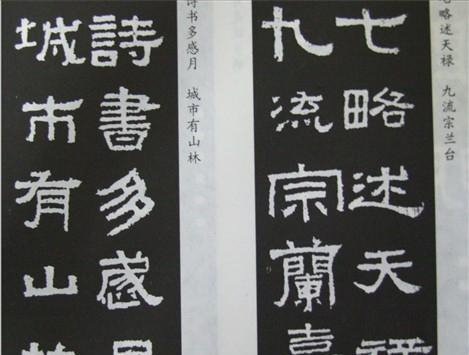 七略述天禄 九流宗兰台
七略述天祿
九流宗蘭臺
诗书多感月 城市有山林
詩書多感月
城市有山林